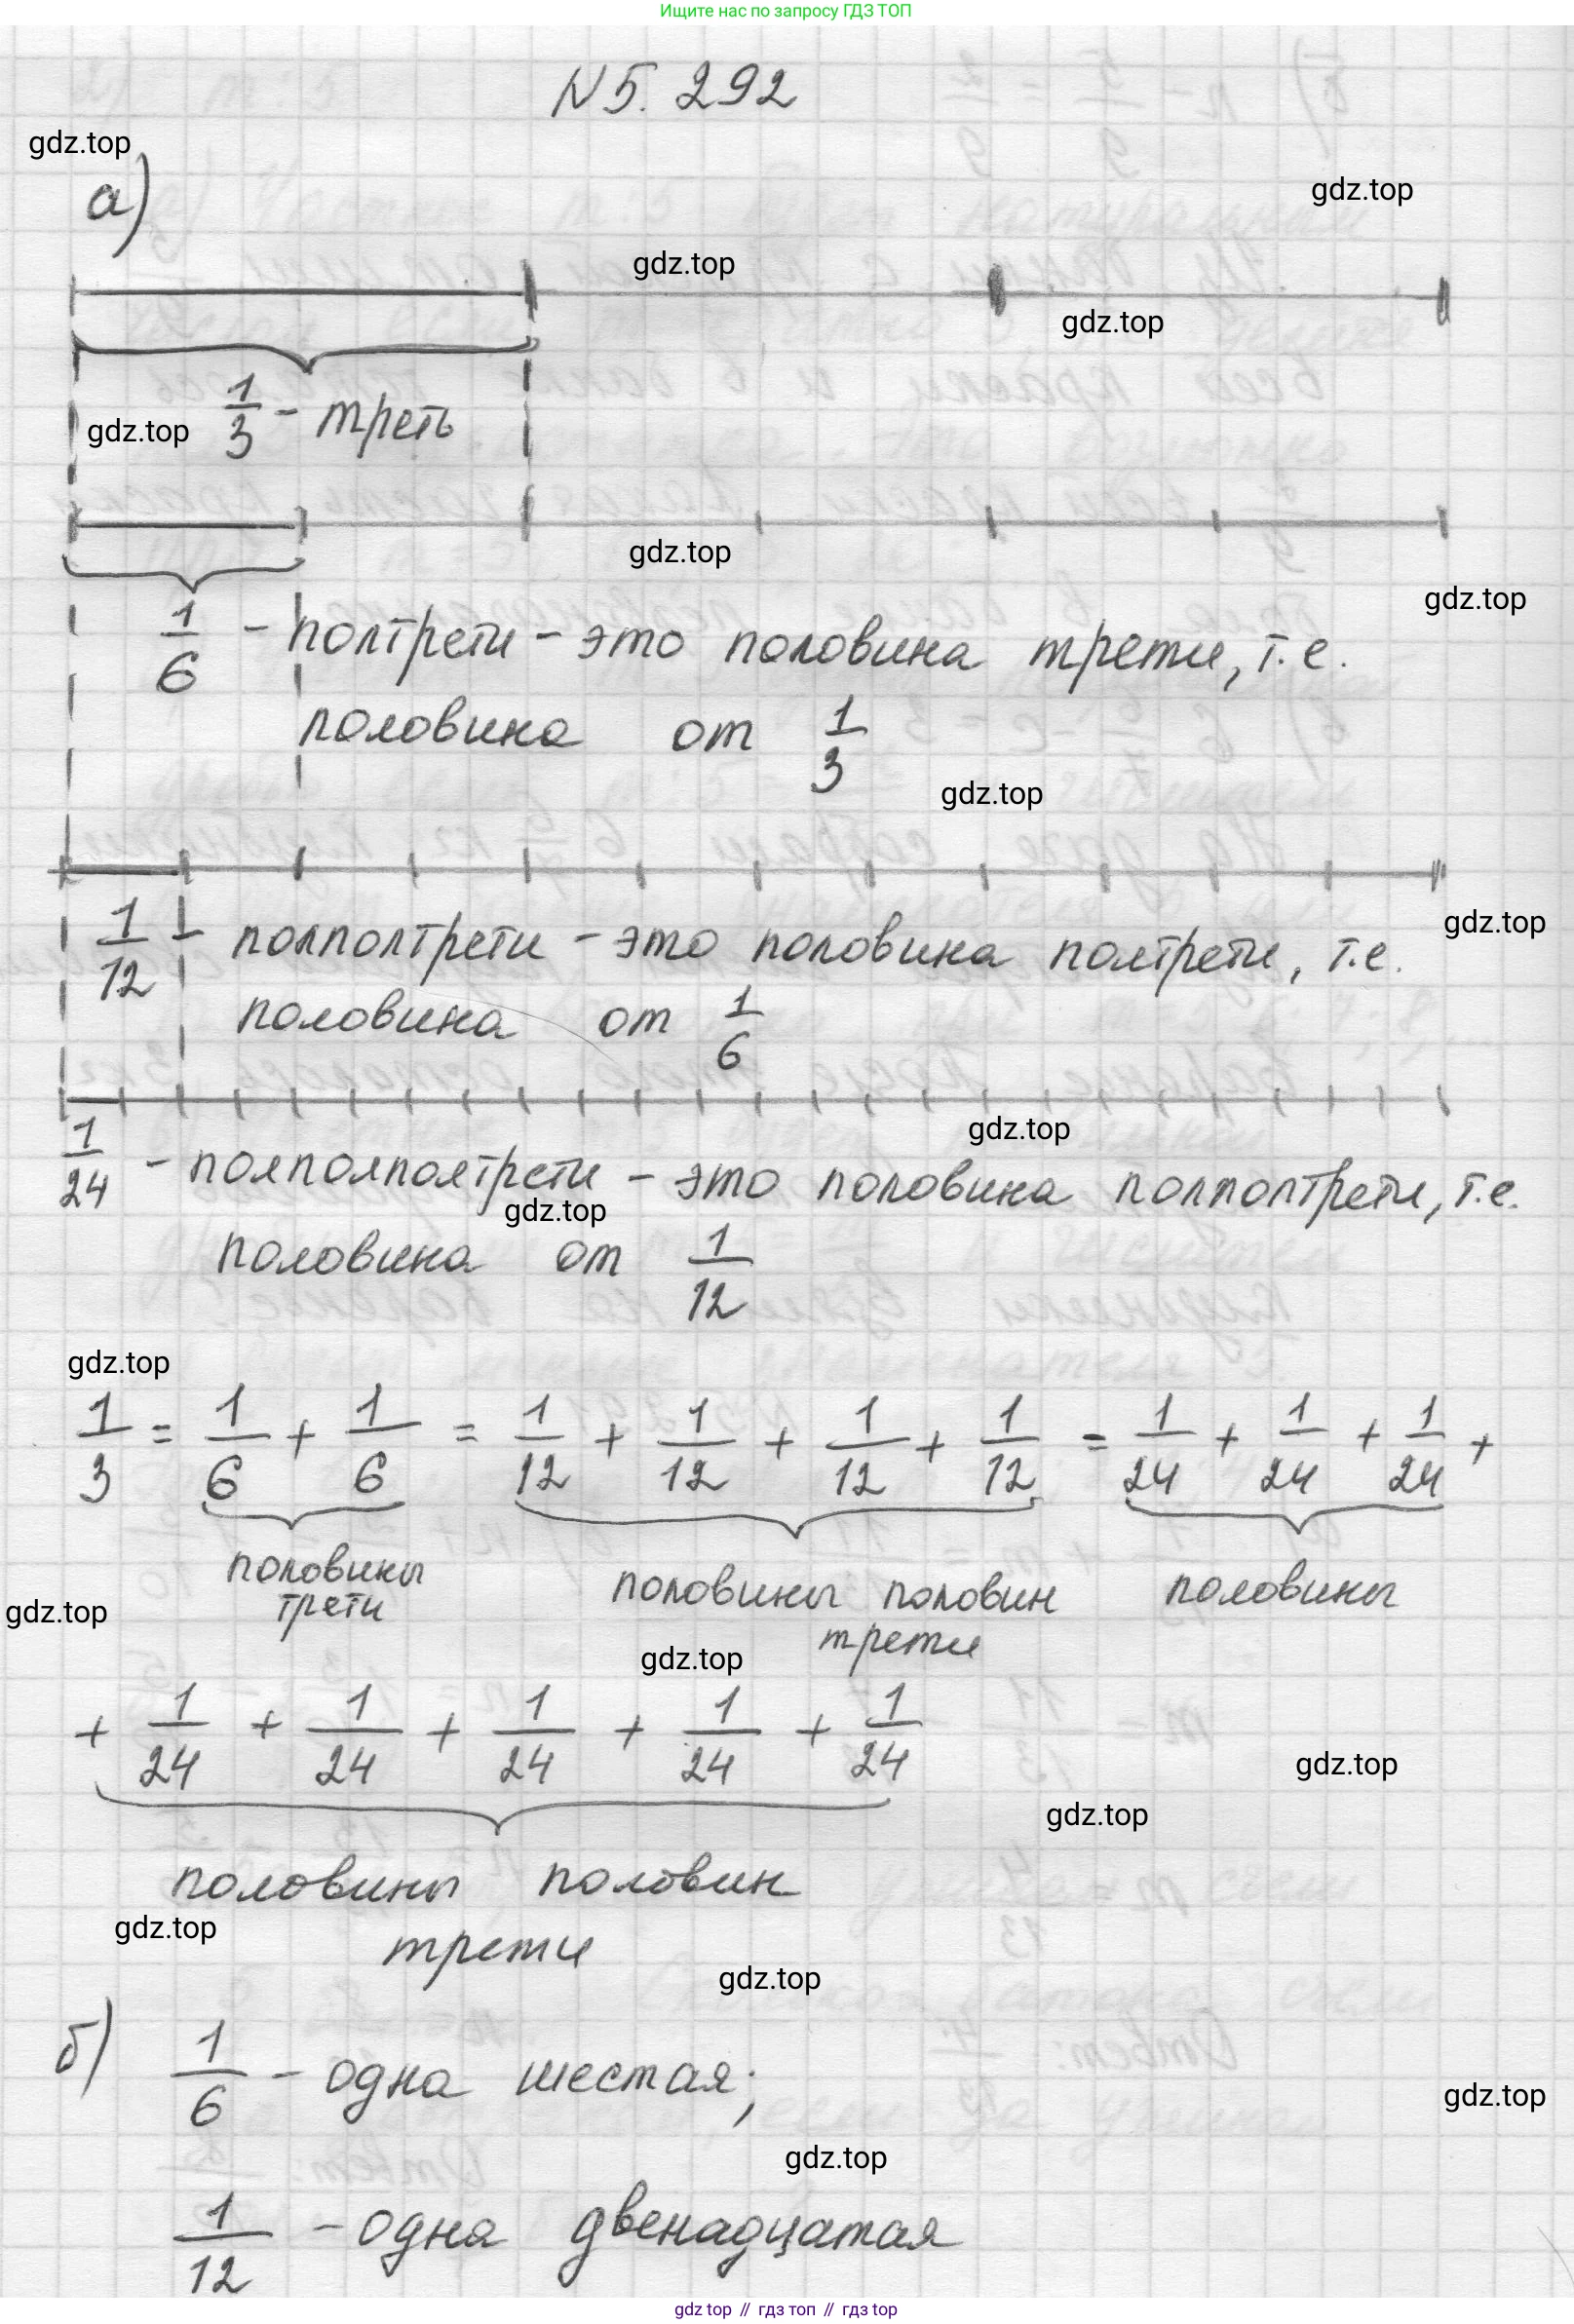 Ищите нас по запросу ГДЗ ТОП
N 5. 292
gdz.top
а)
gdz.top
gdz.top
gdz.top
gdz.top
1/3 - треть
gdz.top
gdz.top
1/6 - полтрети - это половина трети, т.е.
половина от 1/3
gdz.top
gdz.top
1/12 - полполтрети - это половина полтрети, т.е.
половина от 1/6
gdz.top
1/24 - полполполтрети - это половина полполтрети, т.е.
gdz.top
половина от 1/12
gdz.top
1/3 = 1/6 + 1/6 = 1/12 + 1/12 + 1/12 + 1/12 = 1/24 + 1/24 + 1/24 +
половины трети
половины половин трети
половины
gdz.top
gdz.top
+ 1/24 + 1/24 + 1/24 + 1/24 + 1/24
gdz.top
gdz.top
половины половин
gdz.top
трети
gdz.top
б) 1/6 - одна шестая;
gdz.top
gdz.top
1/12 - одна двенадцатая
gdz top // гдз топ // гдз top